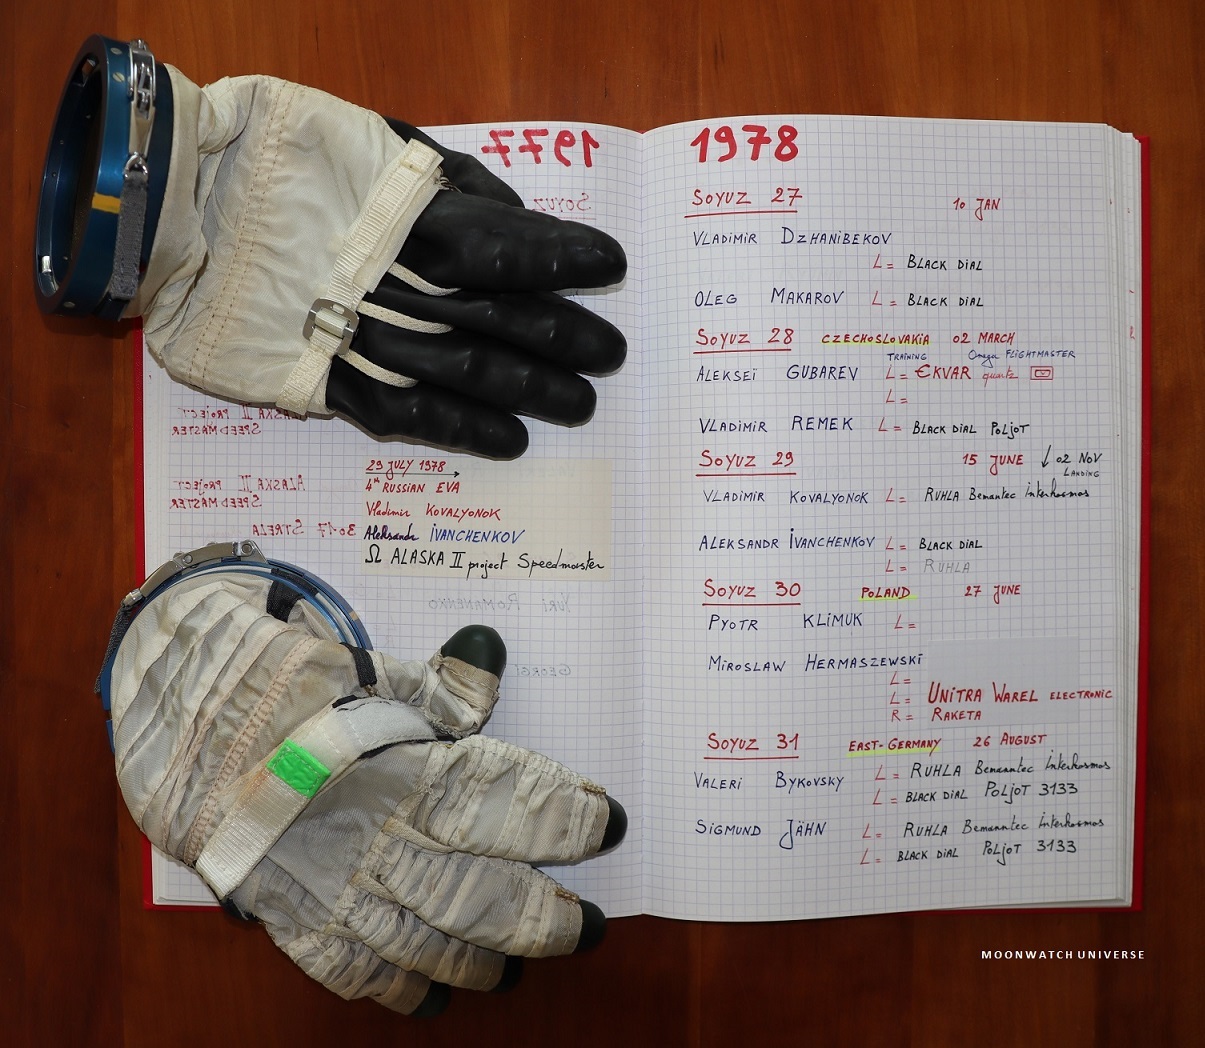 1977
SOYUZ
ALASKA II PROJECT
SPEEDMASTER
ALASKA II PROJECT
SPEEDMASTER
3017 STRELA
29 JULY 1978
4th RUSSIAN EVA
Vladimir KOVALYONOK
Aleksandr IVANCHENKOV
Ω ALASKA II project Speedmaster
YURI ROMANENKO
GEORGI
1978
SOYUZ 27 10 JAN
VLADIMIR DZHANIBEKOV
L = BLACK DIAL
OLEG MAKAROV L = BLACK DIAL
SOYUZ 28 CZECHOSLOVAKIA 02 MARCH
TRAINING Omega FLIGHTMASTER
ALEKSEÏ GUBAREV L = €KVAR quartz
L =
VLADIMIR REMEK L = BLACK DIAL POLJOT
SOYUZ 29 15 JUNE ↓ 02 NOV
LANDING
VLADIMIR KOVALYONOK L = RUHLA Bemantec interkosmos
ALEKSANDR IVANCHENKOV L = BLACK DIAL
L = RUHLA
SOYUZ 30 POLAND 27 JUNE
PYOTR KLIMUK L =
MIROSLAW HERMASZEWSKI
L =
L = UNITRA WAREL ELECTRONIC
R = RAKETA
SOYUZ 31 EAST-GERMANY 26 AUGUST
VALERI BYKOVSKY L = RUHLA Bemanntec interkosmos
L = BLACK DIAL POLJOT 3133
SIGMUND JÄHN L = RUHLA Bemanntec interkosmos
L = BLACK DIAL POLJOT 3133
MOONWATCH UNIVERSE